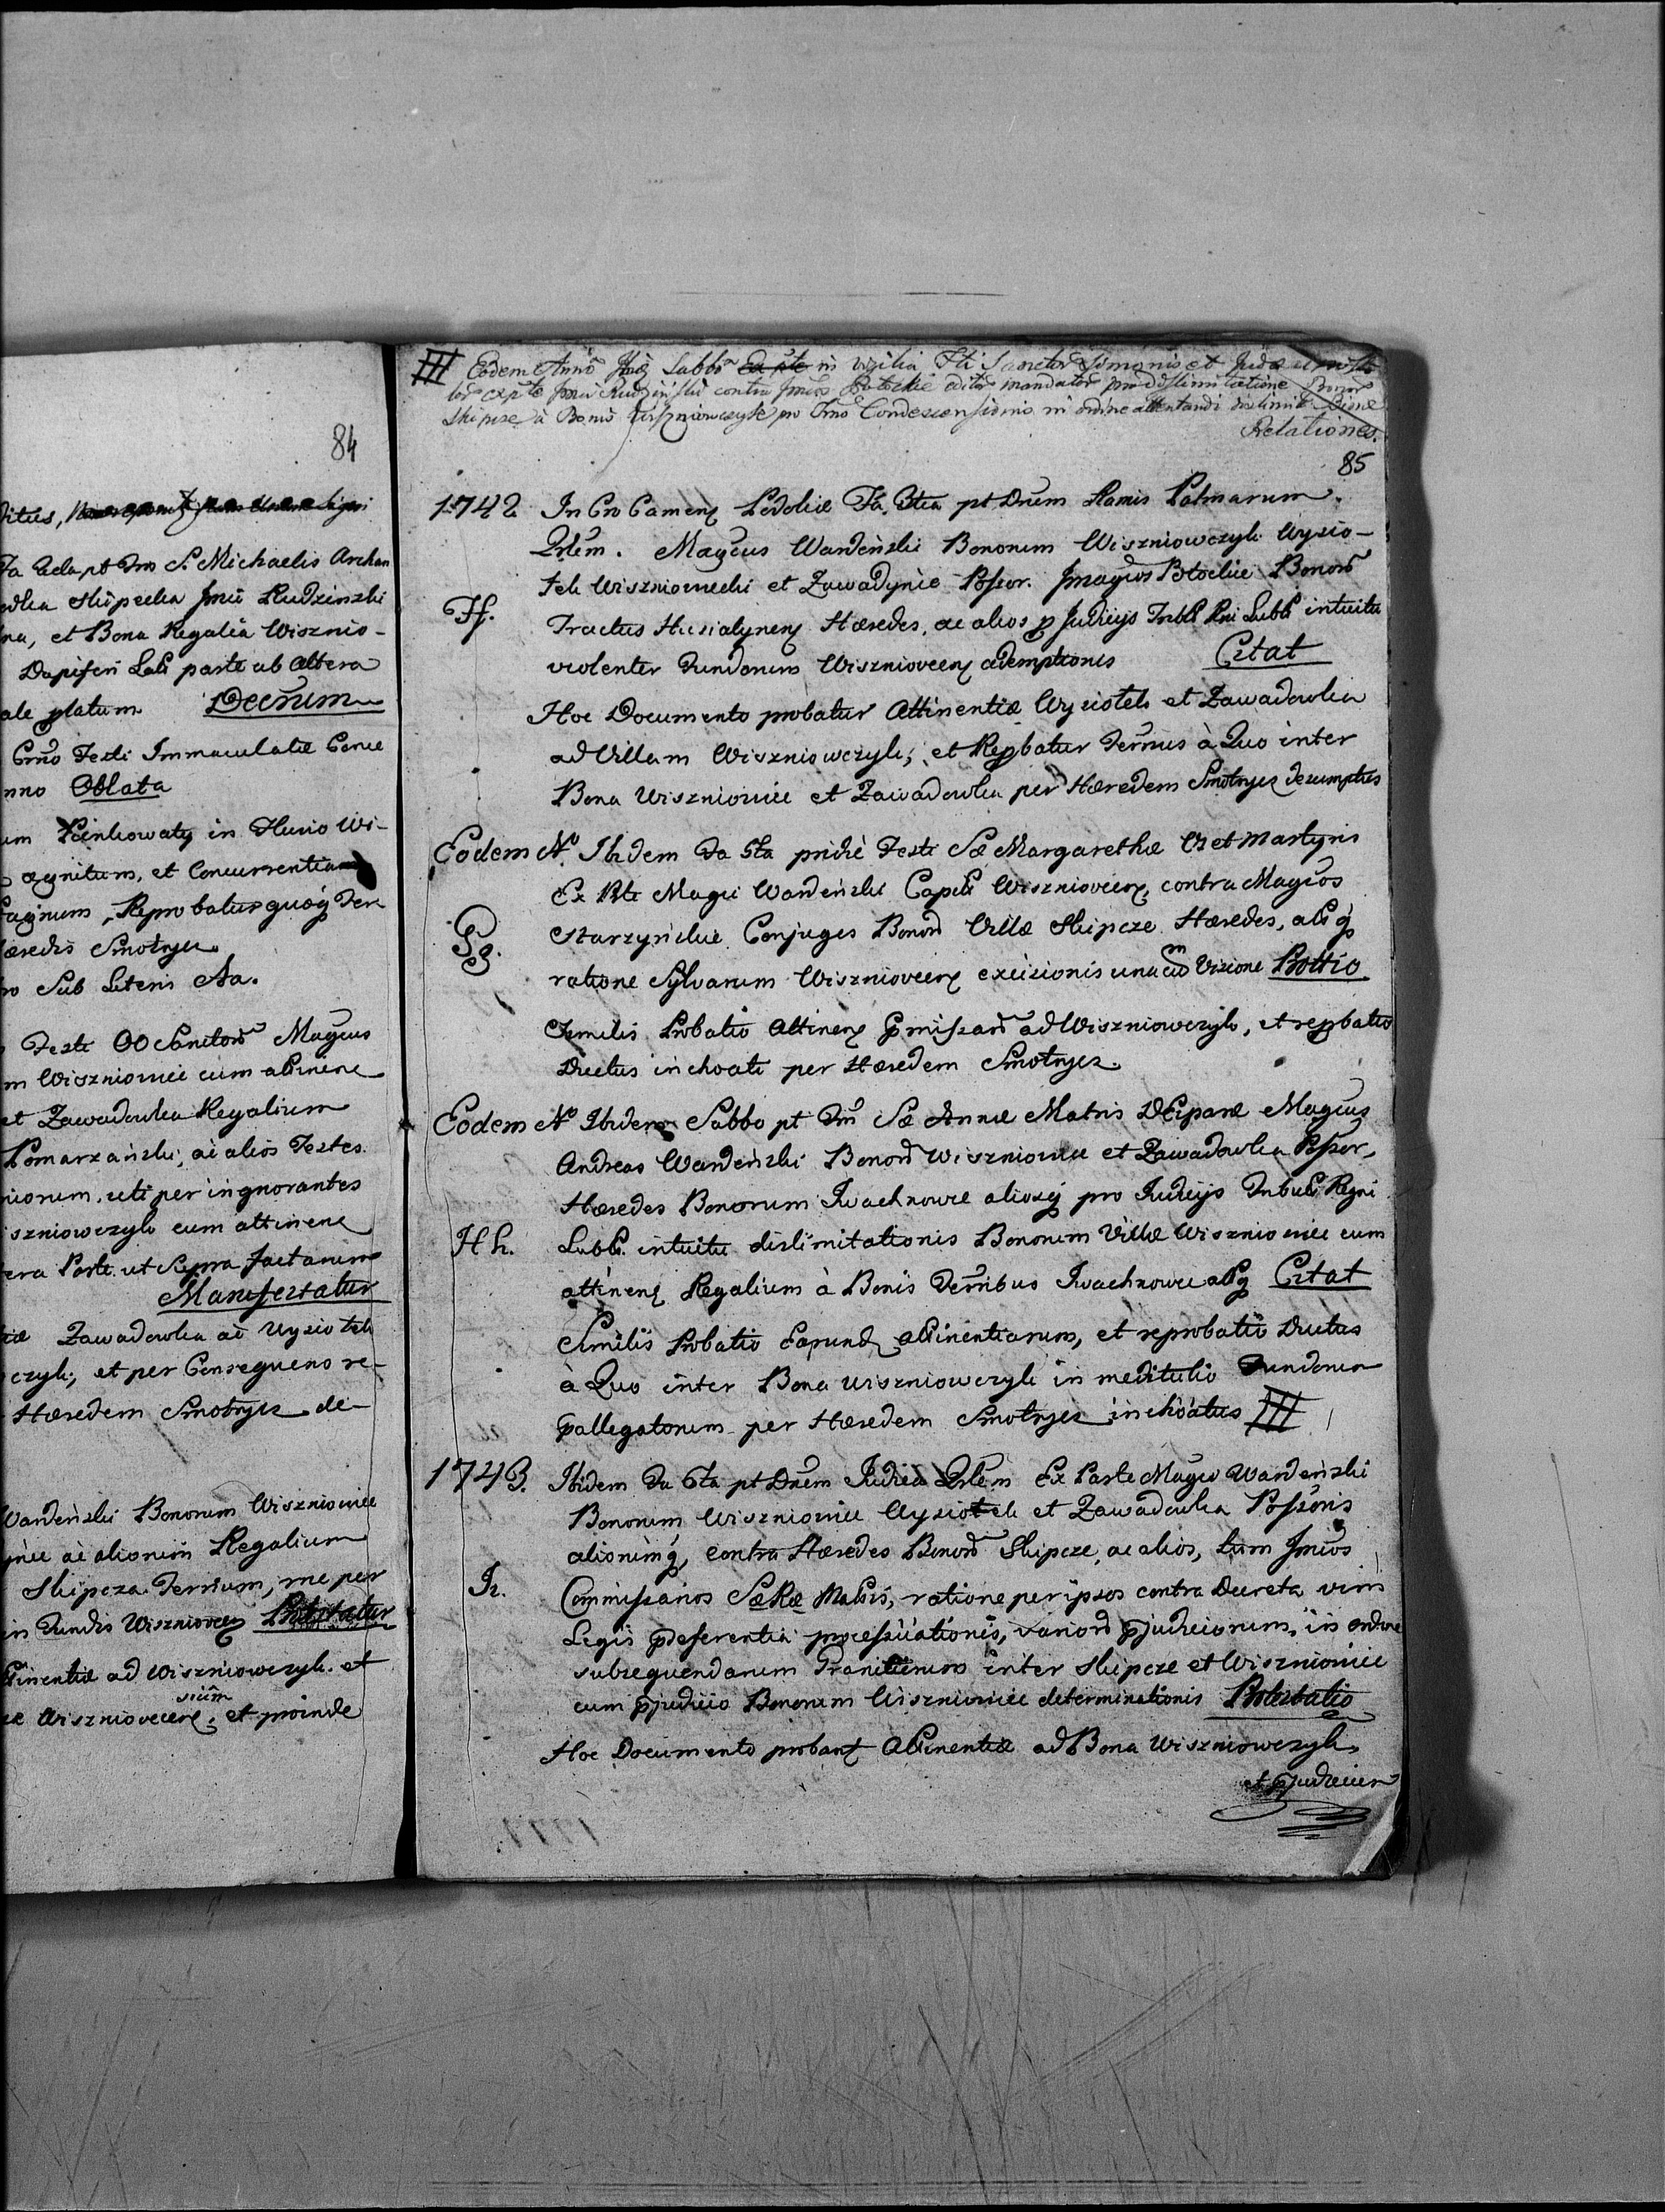 84
ditus,
Fa 2da pt Dno S. Michaelis Archan
Skipecka Jmci Rudzinski
na, et Bona Regalia Wisznio-
Dapiferi Lati parte ab altera
ale platum Decrum
Crno Festi Immaculatæ Conce
nno Oblata
um in Fluvio Wi-
agnitum, et Concurrentiam
Reprobatur quoq Ter
æredis Smotrycz
o Sub Literis Aa.
Festi OO Sanctor Magcus
m Wiszniowiec cum attinenc
et Zawadowka Regalium
Pomarzański, ac alios Testes
niorum, uti per ingnorantes
iszniowczyk cum attinenc
era Parte ut Supra factarum
Manifestatur
iæ Zawadowka ac Uyziotek
czyk, et per Consequens re-
Hæredem Smotrycz de-
Wardeński Bonorum Wiszniowiec
ynce ac aliorum Regalium
Skipcza Terrium, me per
in Fundis Wisznioveen Prtestatur
ttinentiæ ad Wiszniowczyk et
ce Wiszniovecens sium et proinde
Eodem Anno Sabbo Ex pte in vigilia Fti Sanctor Simonis et Judæ
ex pte Jmci Rudziński contra Jmcos Potockie editor mandator pro dislimitatione Bonor
Skipcze à Bonis Wiszniowczyk pro Tmo Condescensionis in ordine attentandi
Relationes.
85
1742 In Cro Camenq Podoliæ Fa 6ta pt Dnem Ramis Palmarum
Qdem. Magcus Wardeński Bonorum Wiszniowczyk Uyzio-
tek Wiszniowiecki et Zawadynce Possor. Jmagcos Błockie Bonor
Ff. Tractus Husiatynenq Hæredes, ac alios p Judicijs Trbli Rni Lubli intuitu
violenter Fundorum Wisznioveenq ademptionis Citat
Hoc Documento probatur Attinentiæ Uyziotek et Zawadowka
ad Villam Wiszniowczyk, et Repbatur Termus à Quo inter
Bona Wiszniowiec et Zawadowka per Hæredem Smotrycz dezumptus
Eodem Ao. Ibdem Fa 5ta pridie Festi Sæ Margarethæ V et Martyris
Ex Pte Magci Wardeński Capli Wisznioveenq contra Magcos
Gg. Starzyńskie Conjuges Bonor Villæ Skipcze Hæredes, alsq
ratione Sylvarum Wisznioveenq excisionis una cum Vizione Prottio
Similis Probatio Attinenq pmissar ad Wiszniowczyk, et repbatio
Ductus inchoati per Hæredem Smotrycz
Eodem Ao Ibidem Sabbo pt Fm Sæ Annæ Matris DEiparæ Magcus
Andreas Wardeński Bonor Wiszniowiec et Zawadowka Possor,
Hæredes Bonorum Iwachnowce aliosq pro Judicijs Tribuli Regni
Hh. Lubli. intuitu dislimitationis Bonorum Villæ Wiszniowiec cum
attinenq Regalium à Bonis Terribus Iwachnowce alsq Citat
Similis Probatio Earund attinentiarum, et reprobatio Ductus
à Quo inter Bona Wiszniowczyk in meditulio Fundorum
pallegatorum per Hæredem Smotrycz inchoatus
1743. Ibidem Fa 6ta pt Dnem Judica Qdem Ex Parte Magci Wardeński
Bonorum Wiszniowiec Uyziotek et Zawadowka Possoris
aliorumq, contra Hæredes Bonor Skipcze, ac alios, tum Jmcos
Ji. Commissarios SæRæ Mattis, ratione per ipsos contra Decreta vim
Legis pdeferentia processuationis, varior pjudiciorum, in ordine
subsequendarum Granitierum inter Skipcze et Wiszniowiec
cum pjudicio Bonorum Wiszniowiec determinationis Protestatio
Hoc Documento probanq Attinentiæ ad Bona Wiszniowczyk
et pjudicium